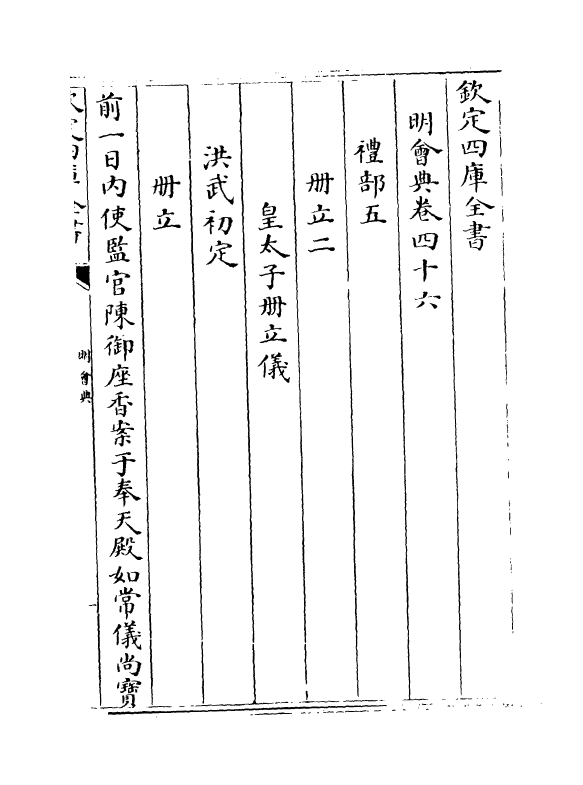 欽定四庫全書
明會典卷四十六
禮部五
冊立二
皇太子冊立儀
洪武初定
冊立
前一日内使監官陳御座香案于奉天殿如常儀尚寶
欽定四庫全書
明會典
一